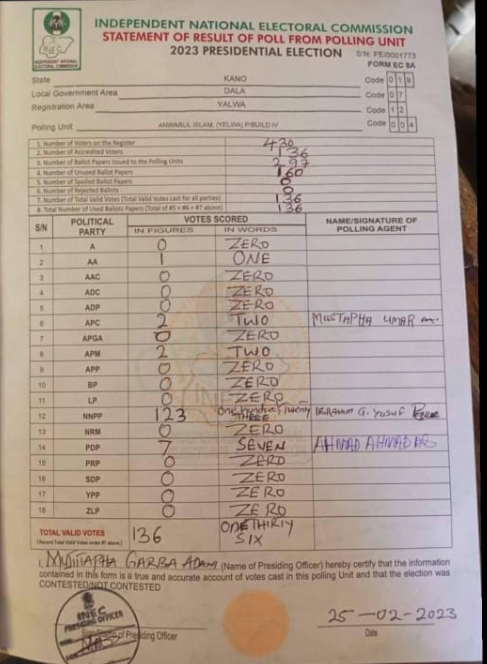 INDEPENDENT NATIONAL ELECTORAL COMMISSION
STATEMENT OF RESULT OF POLL FROM POLLING UNIT
2023 PRESIDENTIAL ELECTION
S/N: PE/0001773
FORM EC 8A
State KANO Code 0 1 9
Local Government Area DALA Code 0 7
Registration Area YALWA Code 1 2
Polling Unit ANWARUL ISLAM, (YELWA) P/BUILD IV Code 0 0 4
1. Number of Voters on the Register 430
2. Number of Accredited Voters 136
3. Number of Ballot Papers Issued to the Polling Units 297
4. Number of Unused Ballot Papers 160
5. Number of Spoiled Ballot Papers 0
6. Number of Rejected Ballots 0
7. Number of Total Valid Votes (Total Valid Votes cast for all parties) 136
8. Total Number of Used Ballots Papers (Total of #5 + #6 + #7 above) 136
S/N POLITICAL PARTY VOTES SCORED NAME/SIGNATURE OF POLLING AGENT
IN FIGURES IN WORDS
1 A 0 ZERO
2 AA 1 ONE
3 AAC 0 ZERO
4 ADC 0 ZERO
5 ADP 0 ZERO
6 APC 2 TWO MUSTAPHA UMAR
7 APGA 0 ZERO
8 APM 2 TWO
9 APP 0 ZERO
10 BP 0 ZERO
11 LP 0 ZERO
12 NNPP 123 One hundred, twenty THREE IBRAHIM G. Yusuf
13 NRM 0 ZERO
14 PDP 7 SEVEN AHMAD AHMAD
15 PRP 0 ZERO
16 SDP 0 ZERO
17 YPP 0 ZERO
18 ZLP 0 ZERO
TOTAL VALID VOTES 136 ONE THIRIY SIX
(Record Total Valid Votes under #7 above)
I, MUSTAPHA GARBA ADAM (Name of Presiding Officer) hereby certify that the information
contained in this form is a true and accurate account of votes cast in this polling Unit and that the election was
CONTESTED/NOT CONTESTED
INEC
PRESIDING OFFICER
of Presiding Officer
25-02-2023
Date